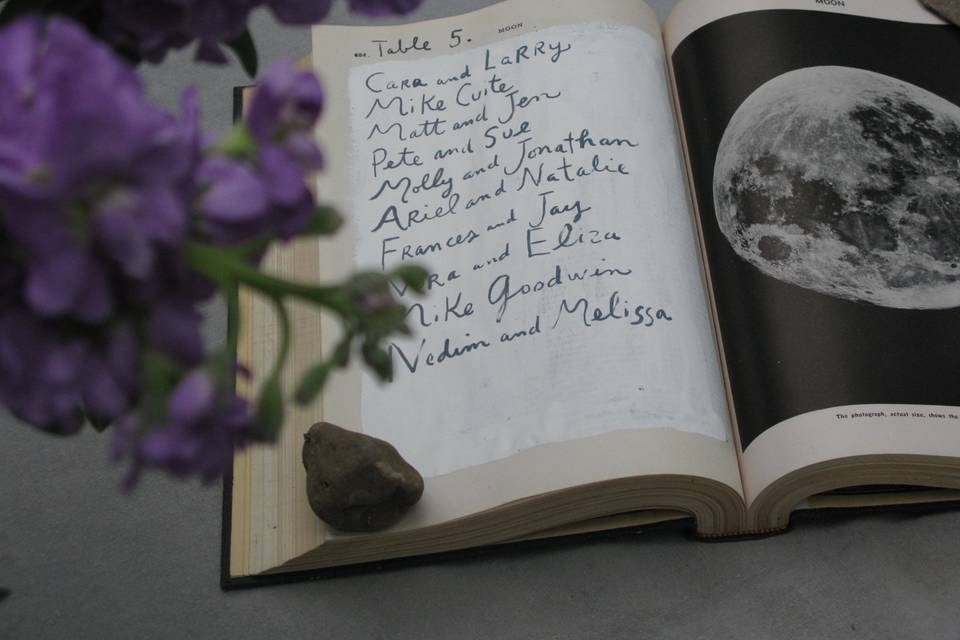 Table 5.
MOON
Cara and Larry
Mike Cuite
Matt and Jen
Pete and Sue
Molly and Jonathan
Ariel and Natalie
Frances and Jay
and Eliza
Mike Goodwin
Nedim and Melissa
MOON
The photograph, actual size, shows the